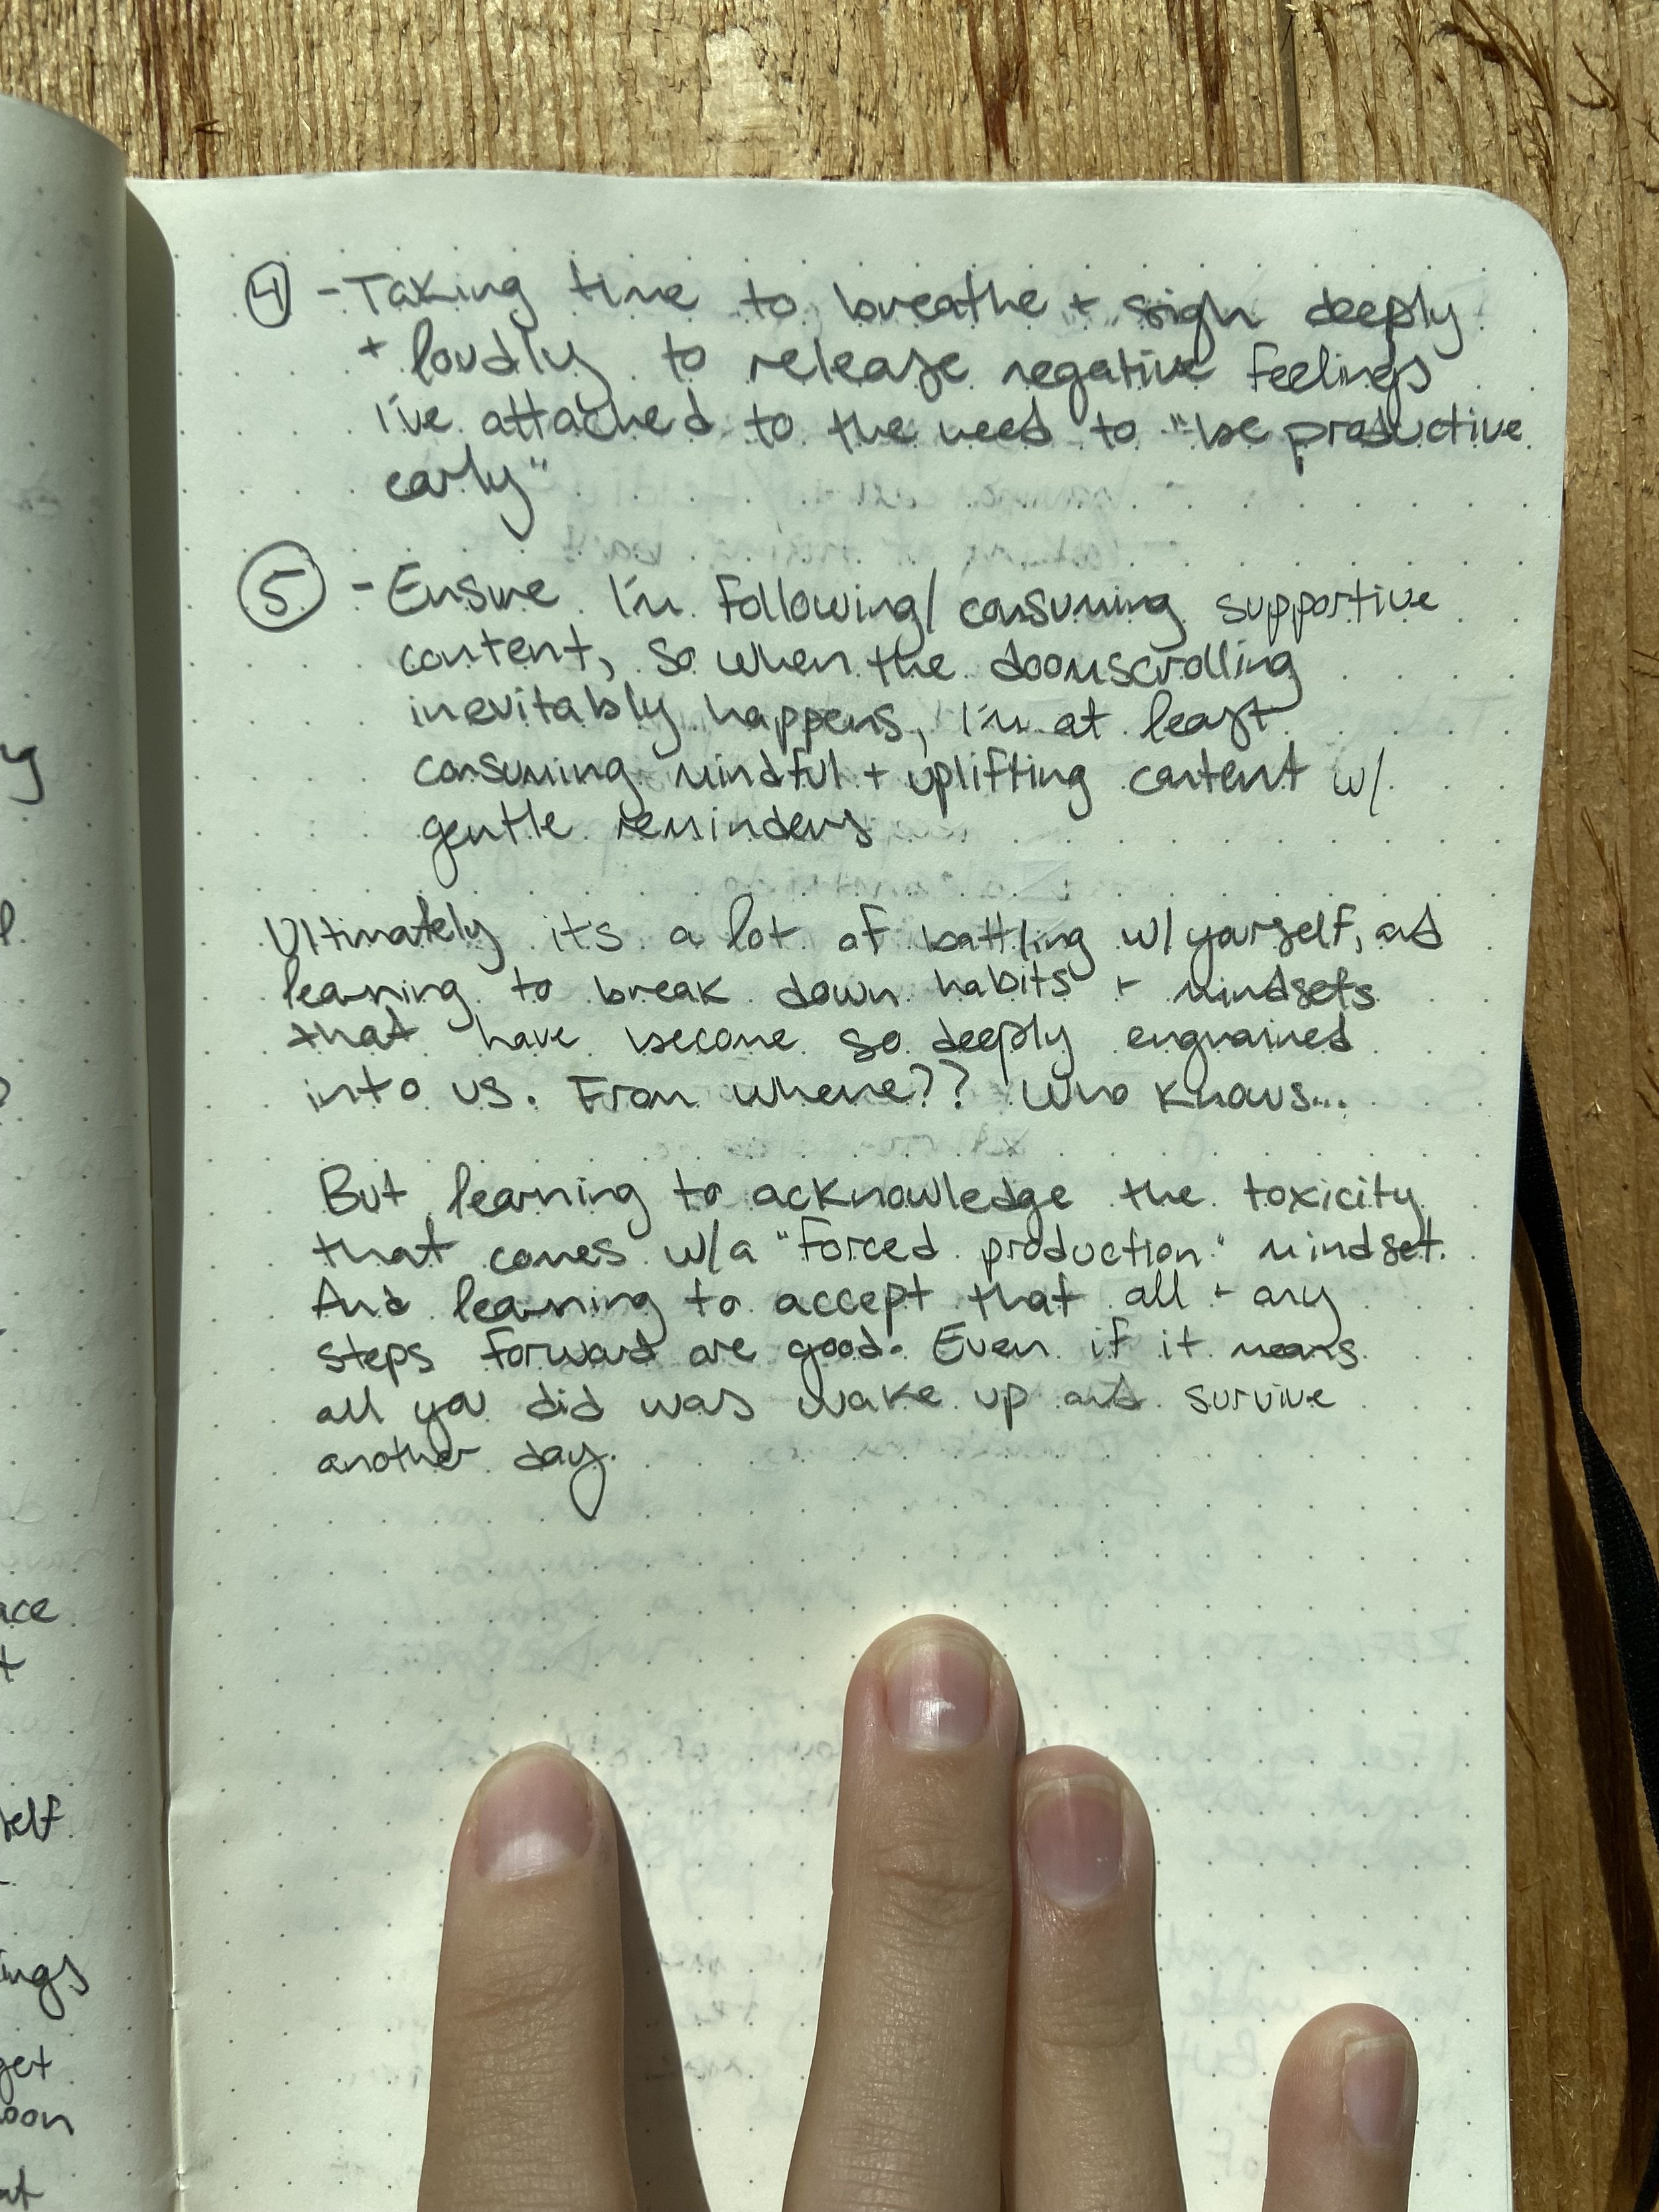 ④ - Taking time to breathe + sigh deeply
+ loudly to release negative feelings
I've attached to the need to "be productive
early"
⑤ - Ensure I'm following/consuming supportive
content, so when the doomscrolling
inevitably happens, I'm at least
consuming mindful + uplifting content w/
gentle reminders
Ultimately it's a lot of battling w/ yourself, and
learning to break down habits + mindsets
that have become so deeply engrained
into us. From where?? Who knows...
But learning to acknowledge the toxicity
that comes w/a "forced production" mindset.
And learning to accept that all + any
steps forward are good. Even if it means
all you did was wake up and survive
another day.